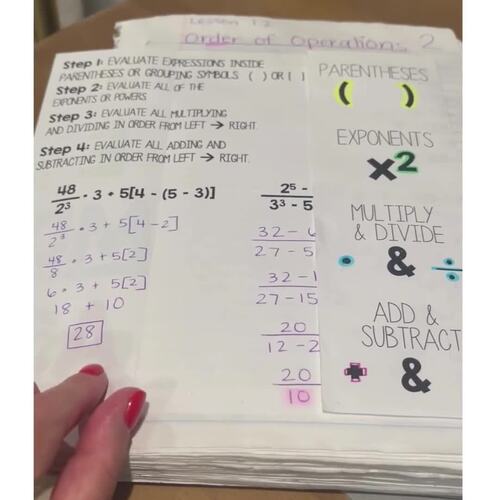 Lesson 12
Order of Operations 2
Step 1: EVALUATE EXPRESSIONS INSIDE
PARENTHESES OR GROUPING SYMBOLS ( ) OR [ ]
Step 2: EVALUATE ALL OF THE
EXPONENTS OR POWERS
Step 3: EVALUATE ALL MULTIPLYING
AND DIVIDING IN ORDER FROM LEFT → RIGHT.
Step 4: EVALUATE ALL ADDING AND
SUBTRACTING IN ORDER FROM LEFT → RIGHT.
48/2³ · 3 + 5[4 - (5 - 3)]
48/2³ · 3 + 5[4 - 2]
48/8 · 3 + 5[2]
6 · 3 + 5[2]
18 + 10
28
2⁵ -
3³ - 5
32 - 
27 - 5
32 - 1
27 - 15
20
12 - 2
20
10
PARENTHESES
( )
EXPONENTS
x²
MULTIPLY
& DIVIDE
· & ÷
ADD &
SUBTRACT
+ &